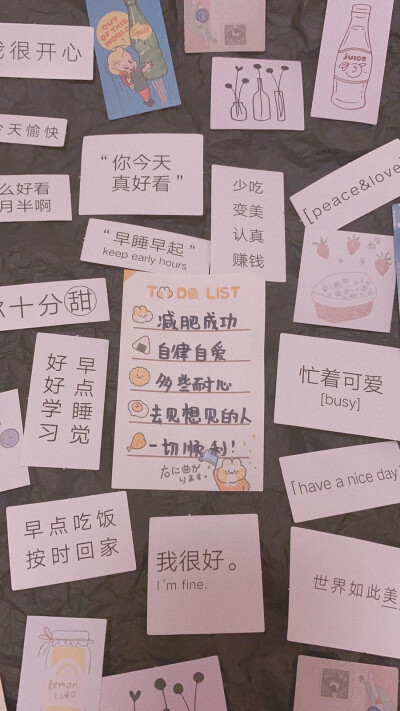 我很开心
OUT OF
THIS WORLD
Soda
JUICE
今天愉快
“你今天
真好看”
么好看
月半啊
少吃
变美
认真
赚钱
[peace&love]
“早睡早起”
keep early hours
你十分甜
TO DO LIST
减肥成功
自律自爱
多些耐心
去见想见的人
一切顺利!
右に曲が
ります。
早点睡觉
好好学习
忙着可爱
[busy]
「have a nice day
早点吃饭
按时回家
我很好。
I'm fine.
世界如此美
lemon